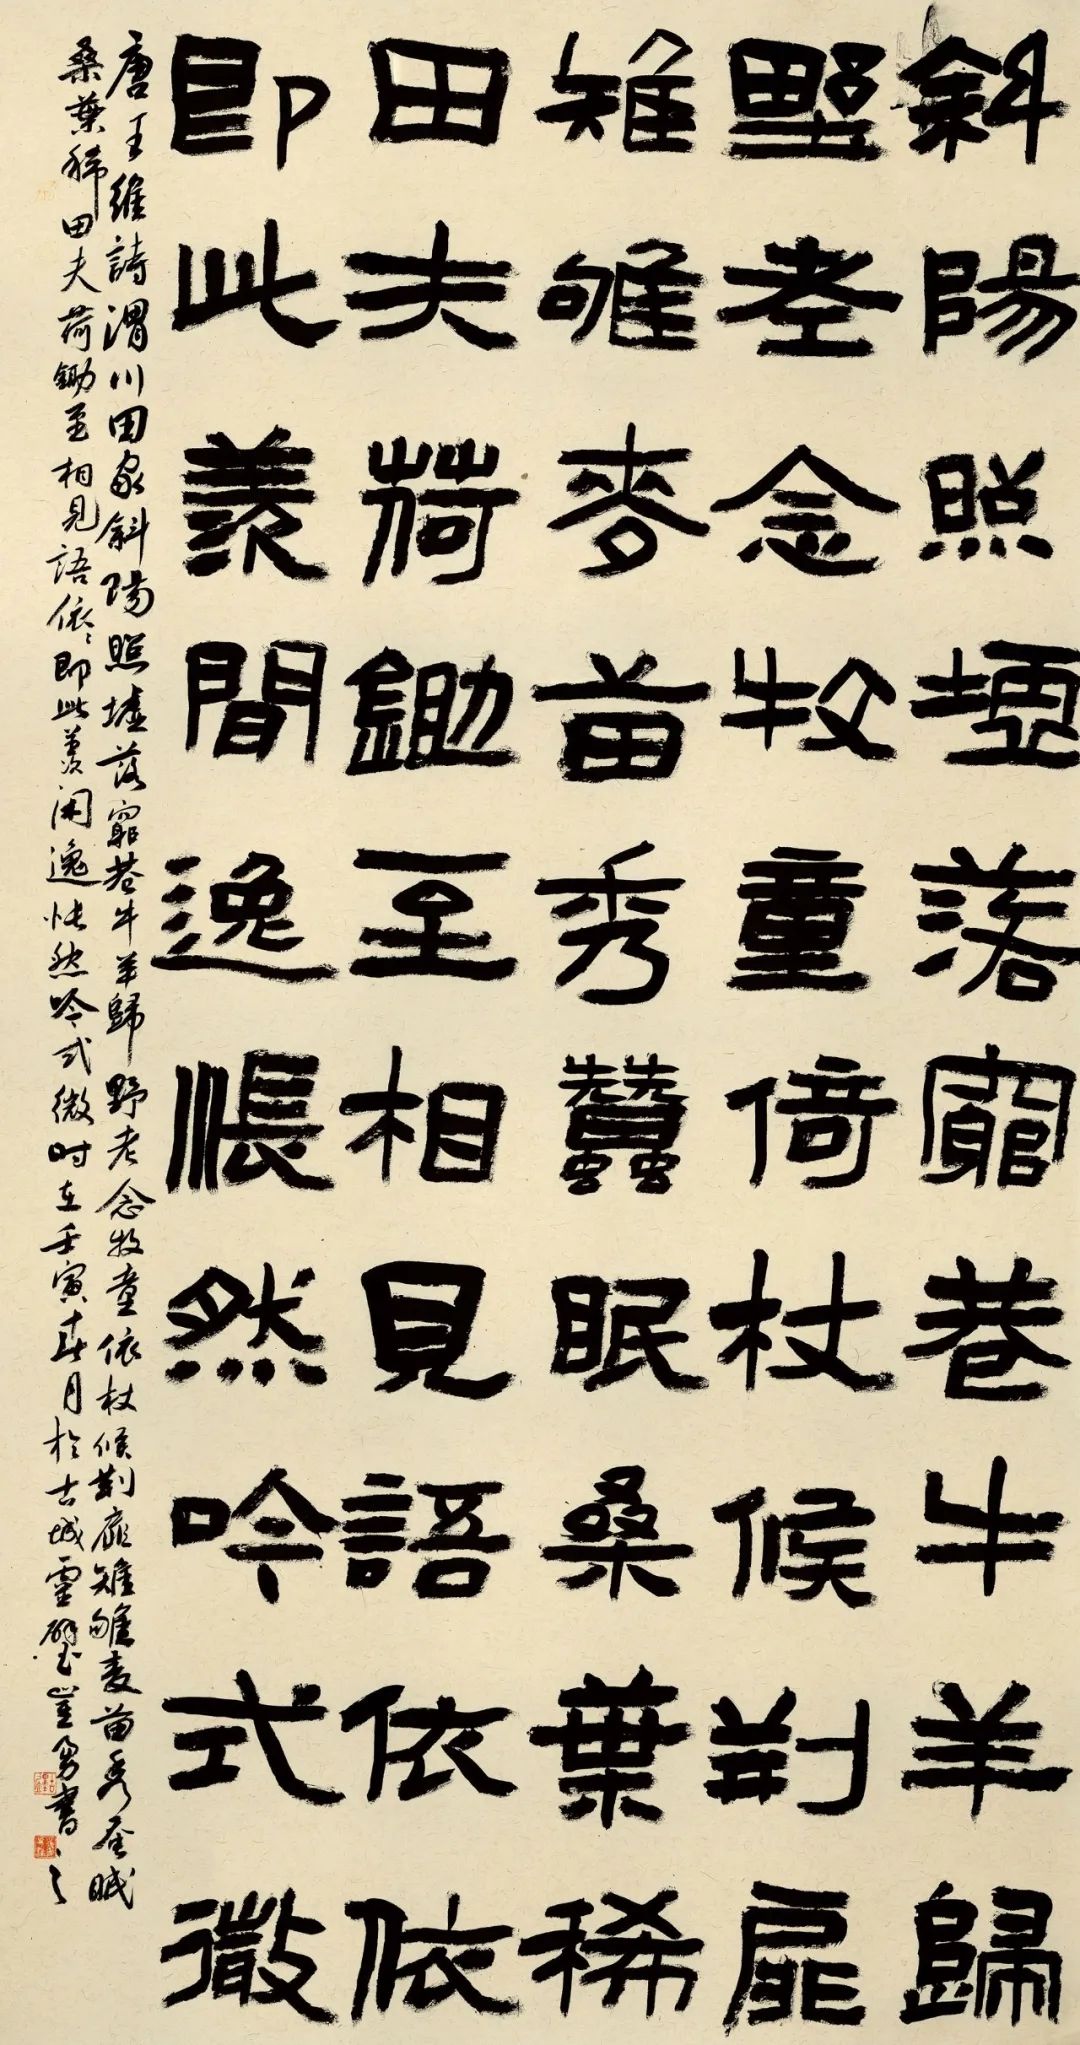 斜陽照墟落窮巷牛羊歸
野老念牧童倚杖候荊扉
雉雊麥苗秀蠶眠桑葉稀
田夫荷鋤至相見語依依
即此羨間逸悵然吟式微
唐王維詩渭川田家斜陽照墟落窮巷牛羊歸野老念牧童依杖候荊扉雉雊麥苗秀蚕眠
桑葉稀田夫荷鋤至相見語依〻即此羨閑逸悵然吟式微時在壬寅春月於古城靈璧勇書之